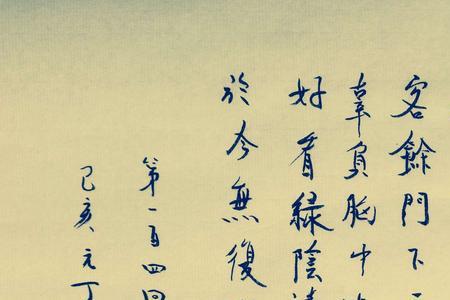 客餘門下
辜負胸中
好看綠陰
於今無復
第一百四
己亥元